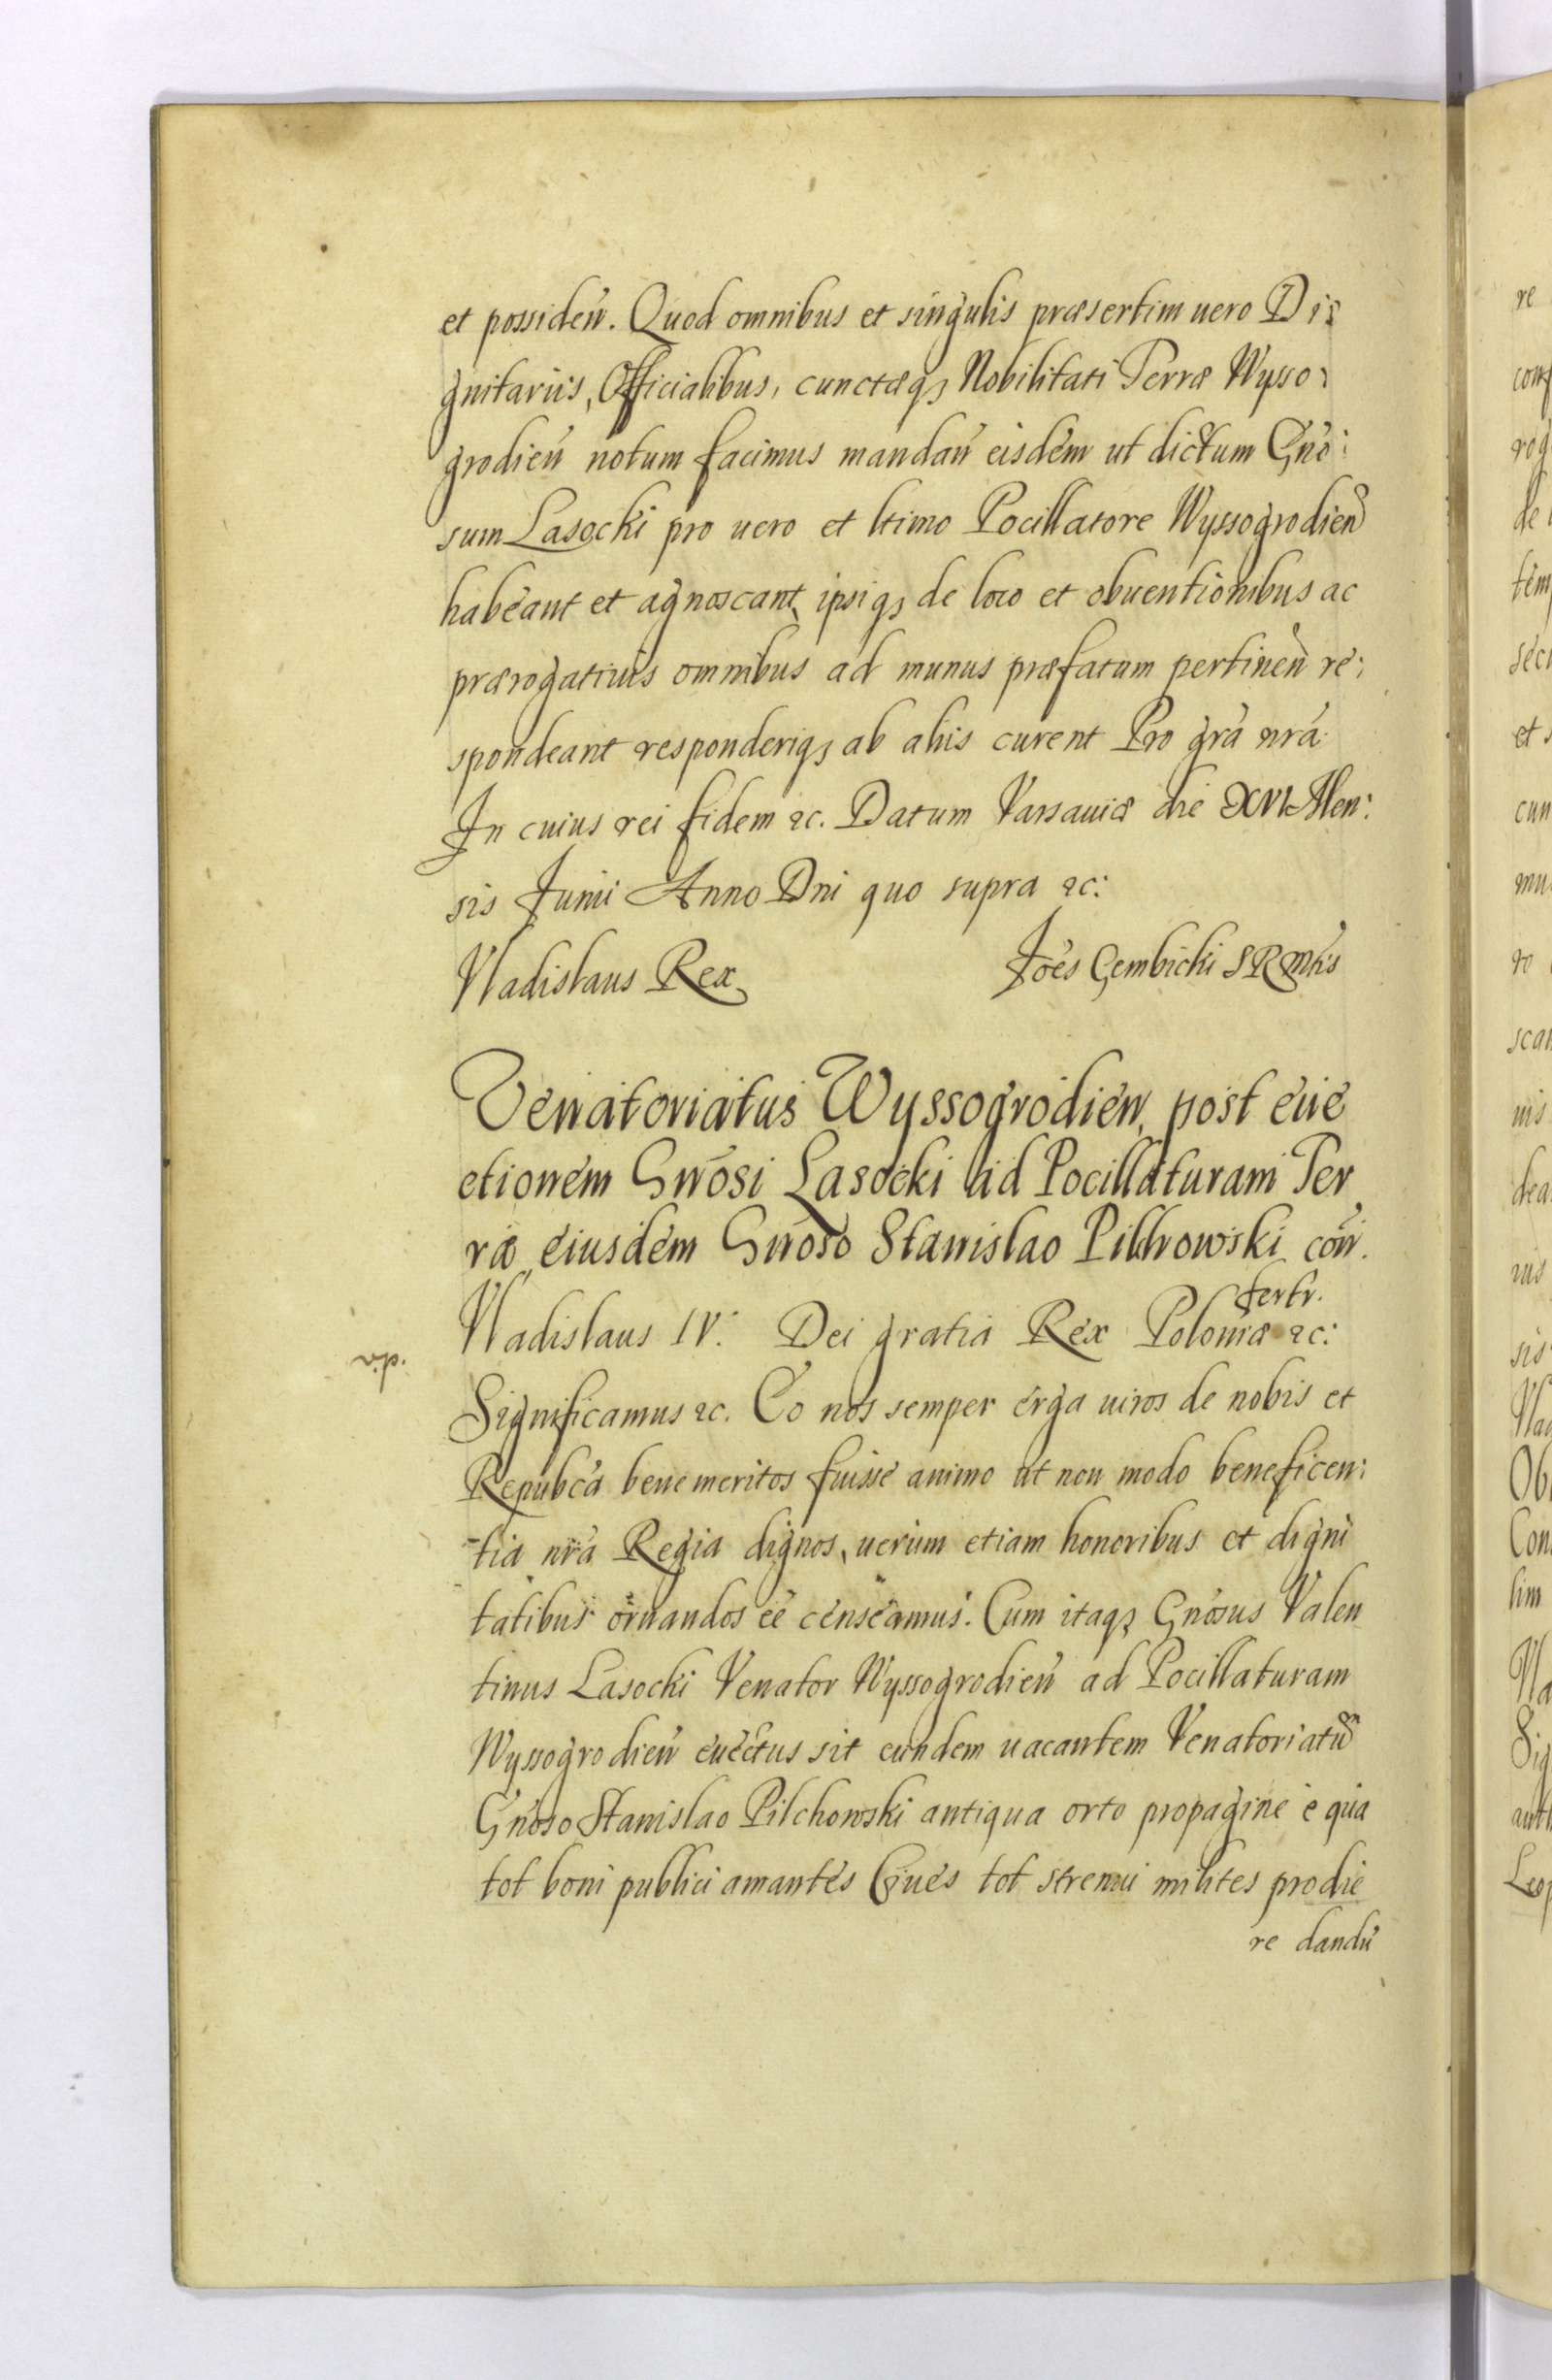 et possideń. Quod omnibus et singulis præsertim uero Di:
gnitariis, Officialibus, cunctæq₃ Nobilitati Terræ Wysso:
grodień notum facimus mandań eisdem ut dictum Gnō:
sum Lasocki pro uero et ltimo Pocillatore Wyssogrodień
habeant et agnoscant, ipsiq₃ de loco et obuentionibus ac
prærogatiuis omnibus ad munus præfatum pertineń re:
spondeant responderiq₃ ab aliis curent Pro grā nrā
In cuius rei fidem ꝛc. Datum Varsauiæ die XVI Men:
sis Junii Anno Dni quo supra ꝛc:
Vladislaus Rex
Joēs Gembicki S R Mtis
Venatoriatus Wyssogrodień, post eue
ctionem Gnōsi Lasocki ad Pocillaturam Ter
ræ eiusdem Gnōso Stanislao Pilchowski coń.
fertr.
Vladislaus IV. Dei gratia Rex Poloniæ ꝛc:
Significamus ꝛc. Eo nos semper erga uiros de nobis et
Republcā bene meritos fuisse animo ut non modo beneficen:
tia nrā Regia dignos, uerum etiam honoribus et digni
tatibus ornandos eē censeamus. Cum itaq₃ Gnōsus Valen
tinus Lasocki Venator Wyssogrodień ad Pocillaturam
Wyssogrodień euectus sit eundem uacantem Venatoriatū
Gnōso Stanislao Pilchowski antiqua orto propagine e qua
tot boni publici amantes Ciues tot strenui milites prodie
re dandū